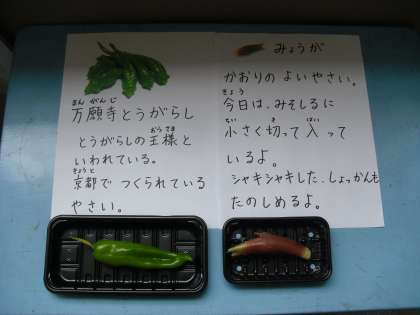 まんがんじ
万願寺とうがらし
とうがらしの王様と
おうさま
いわれている。
きょうと
京都でつくられている
やさい。
みょうが
かおりのよいやさい。
きょう
今日は、みそしるに
ちい き はい
小さく切って入って
いるよ。
シャキシャキした、しょっかんも
たのしめるよ。